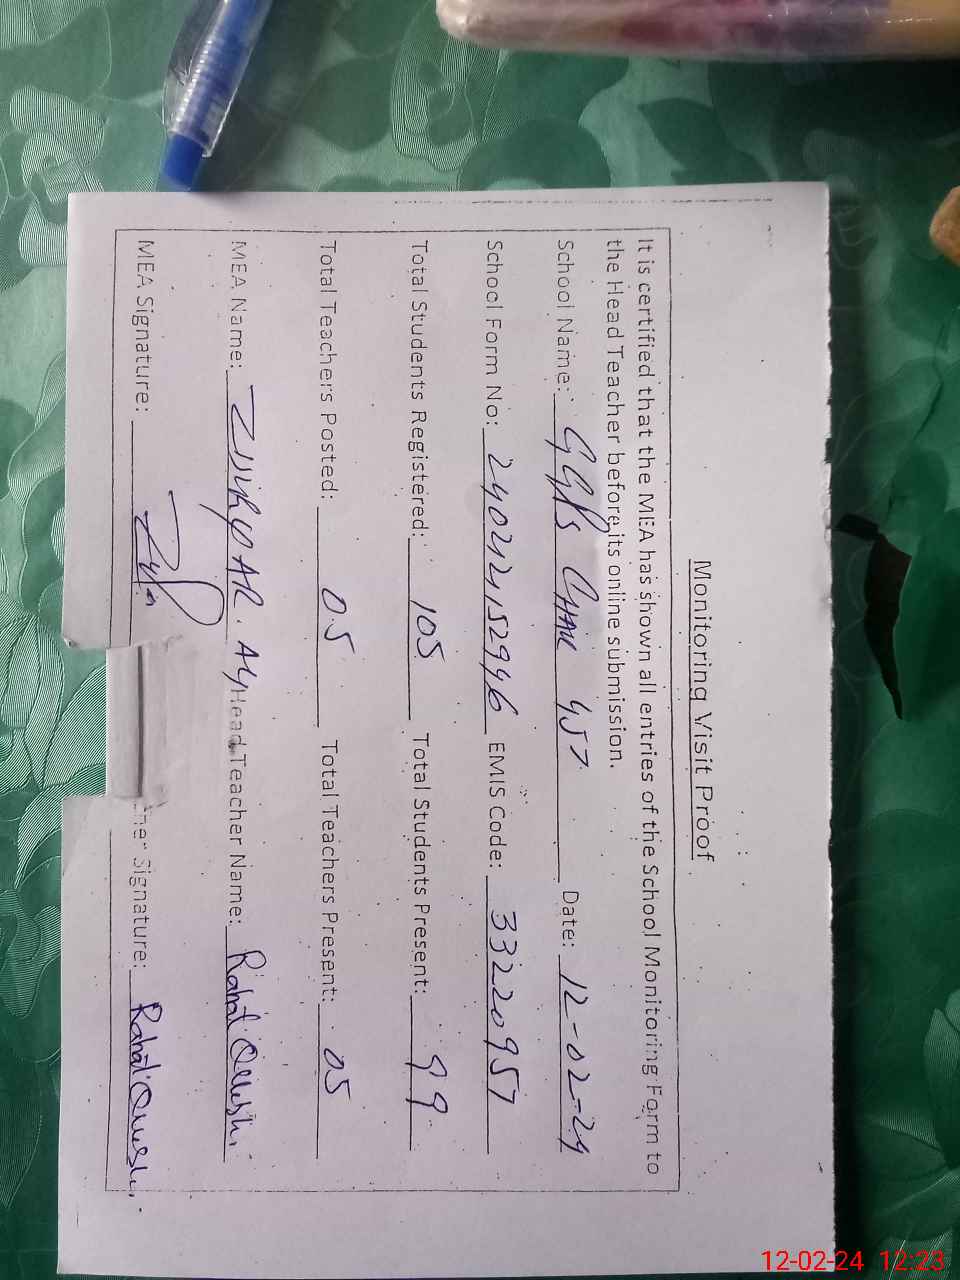 Monitoring Visit Proof
It is certified that the MEA has shown all entries of the School Monitoring Form to
the Head Teacher before its online submission.
School Name: GGPS CHAK 457 Date: 12-02-24
School Form No: 240212152946 EMIS Code: 33220957
Total Students Registered: 105 Total Students Present: 99
Total Teachers Posted: 05 Total Teachers Present: 05
MEA Name: Head Teacher Name: Rahat
MEA Signature: Signature: Rahat
12-02-24 12:23